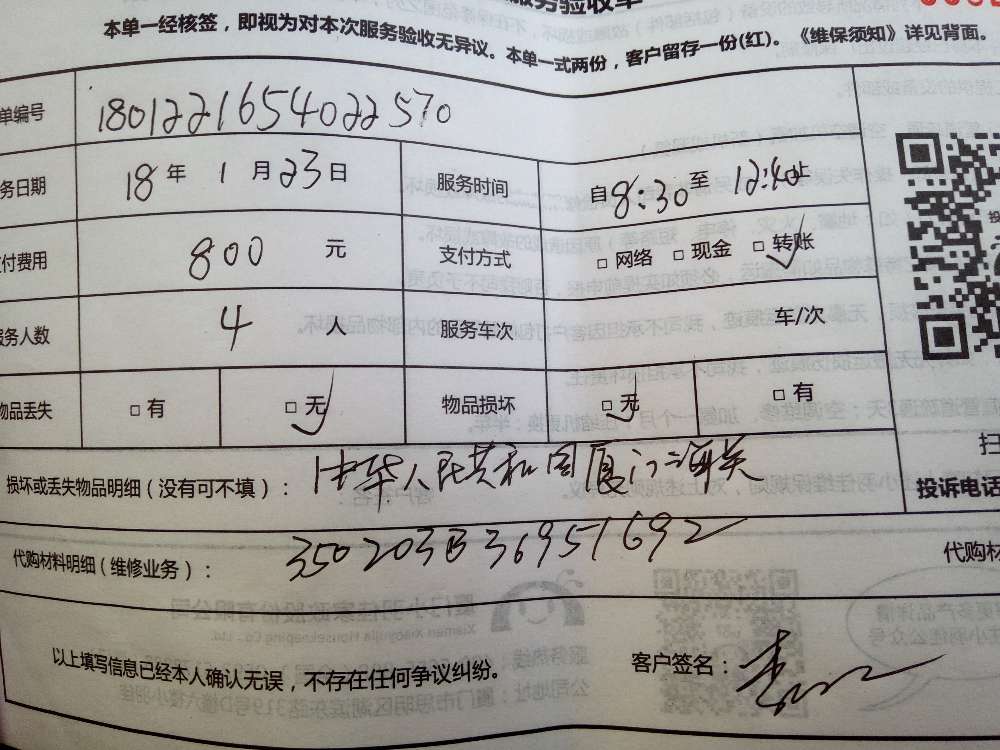 服务验收单
本单一经核签，即视为对本次服务验收无异议。本单一式两份，客户留存一份(红)。《维保须知》详见背面。
单编号 1801221654022570
务日期 18 年 1 月 23 日 服务时间 自 8:30 至 12:40 止
支付费用 800 元 支付方式 □ 网络 □ 现金 □ 转账
服务人数 4 人 服务车次 车/次
物品丢失 □ 有 □ 无 物品损坏 □ 无 □ 有
损坏或丢失物品明细（没有可不填）： 中华人民共和国厦门海关
扫
投诉电话
代购材料明细（维修业务）： 350203B36951692 代购材
以上填写信息已经本人确认无误，不存在任何争议纠纷。 客户签名：